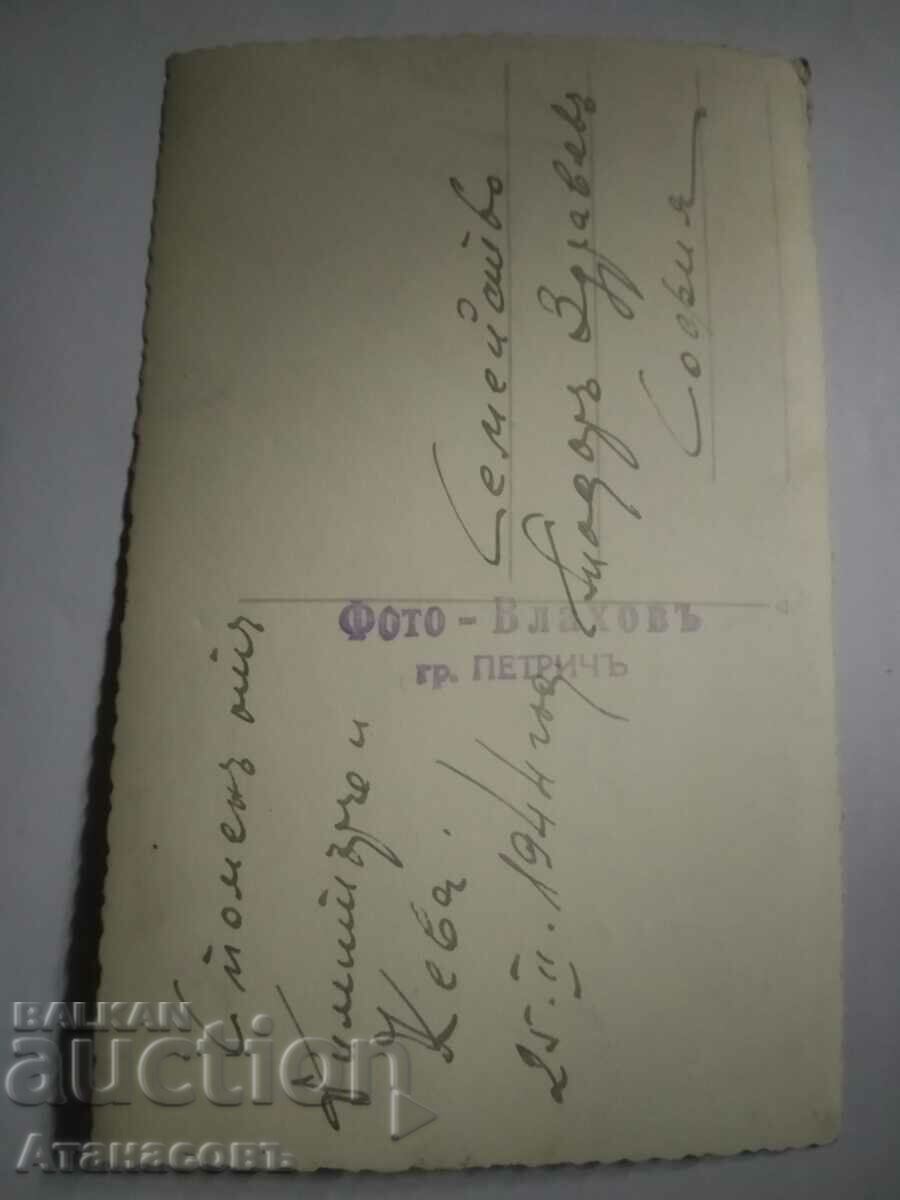 Споменъ отъ
Димитърчо и
Жева.
25.II.1944 год
Фото - Влаховъ
гр. ПЕТРИЧЪ
Семейство
Тодоръ Здравевъ
София
BALKAN
auction
Атанасовъ